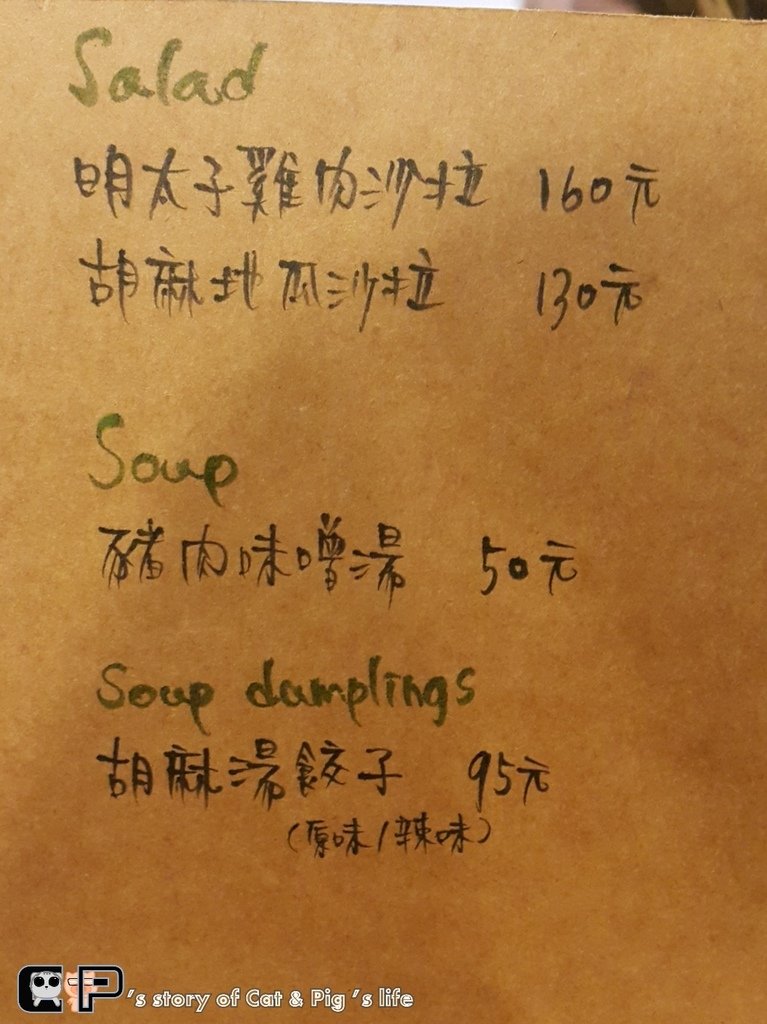 Salad
明太子雞肉沙拉 160元
胡麻地瓜沙拉 130元
Soup
豬肉味噌湯 50元
Soup damplings
胡麻湯餃子 95元
(原味/辣味)
CP's story of Cat & Pig's life